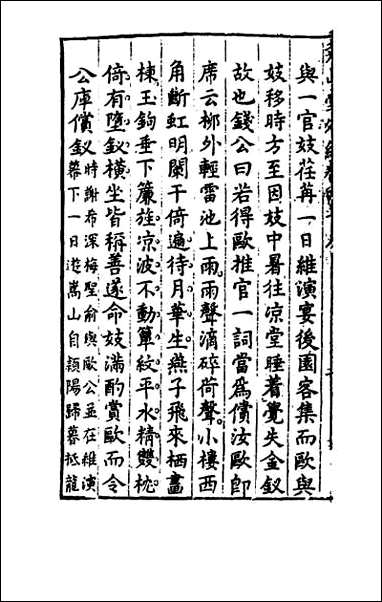 與一官妓荏苒一日維演宴後園客集而歐與
妓移時方至因妓中暑往凉堂睡著覺失金釵
故也錢公曰若得歐推官一詞當爲償汝歐即
席云栁外輕雷池上雨雨聲滴碎荷聲小樓西
角斷虹明闌干倚遍待月華生燕子飛來栖畫
棟玉鉤垂下簾旌凉波不動簟紋平水精雙枕
倚有墮釵橫坐皆稱善遂命妓滿酌賞歐而令
公庫償釵時謝希深梅聖俞與歐公孟在維演
幕下一日遊嵩山自頴陽歸暮抵龍